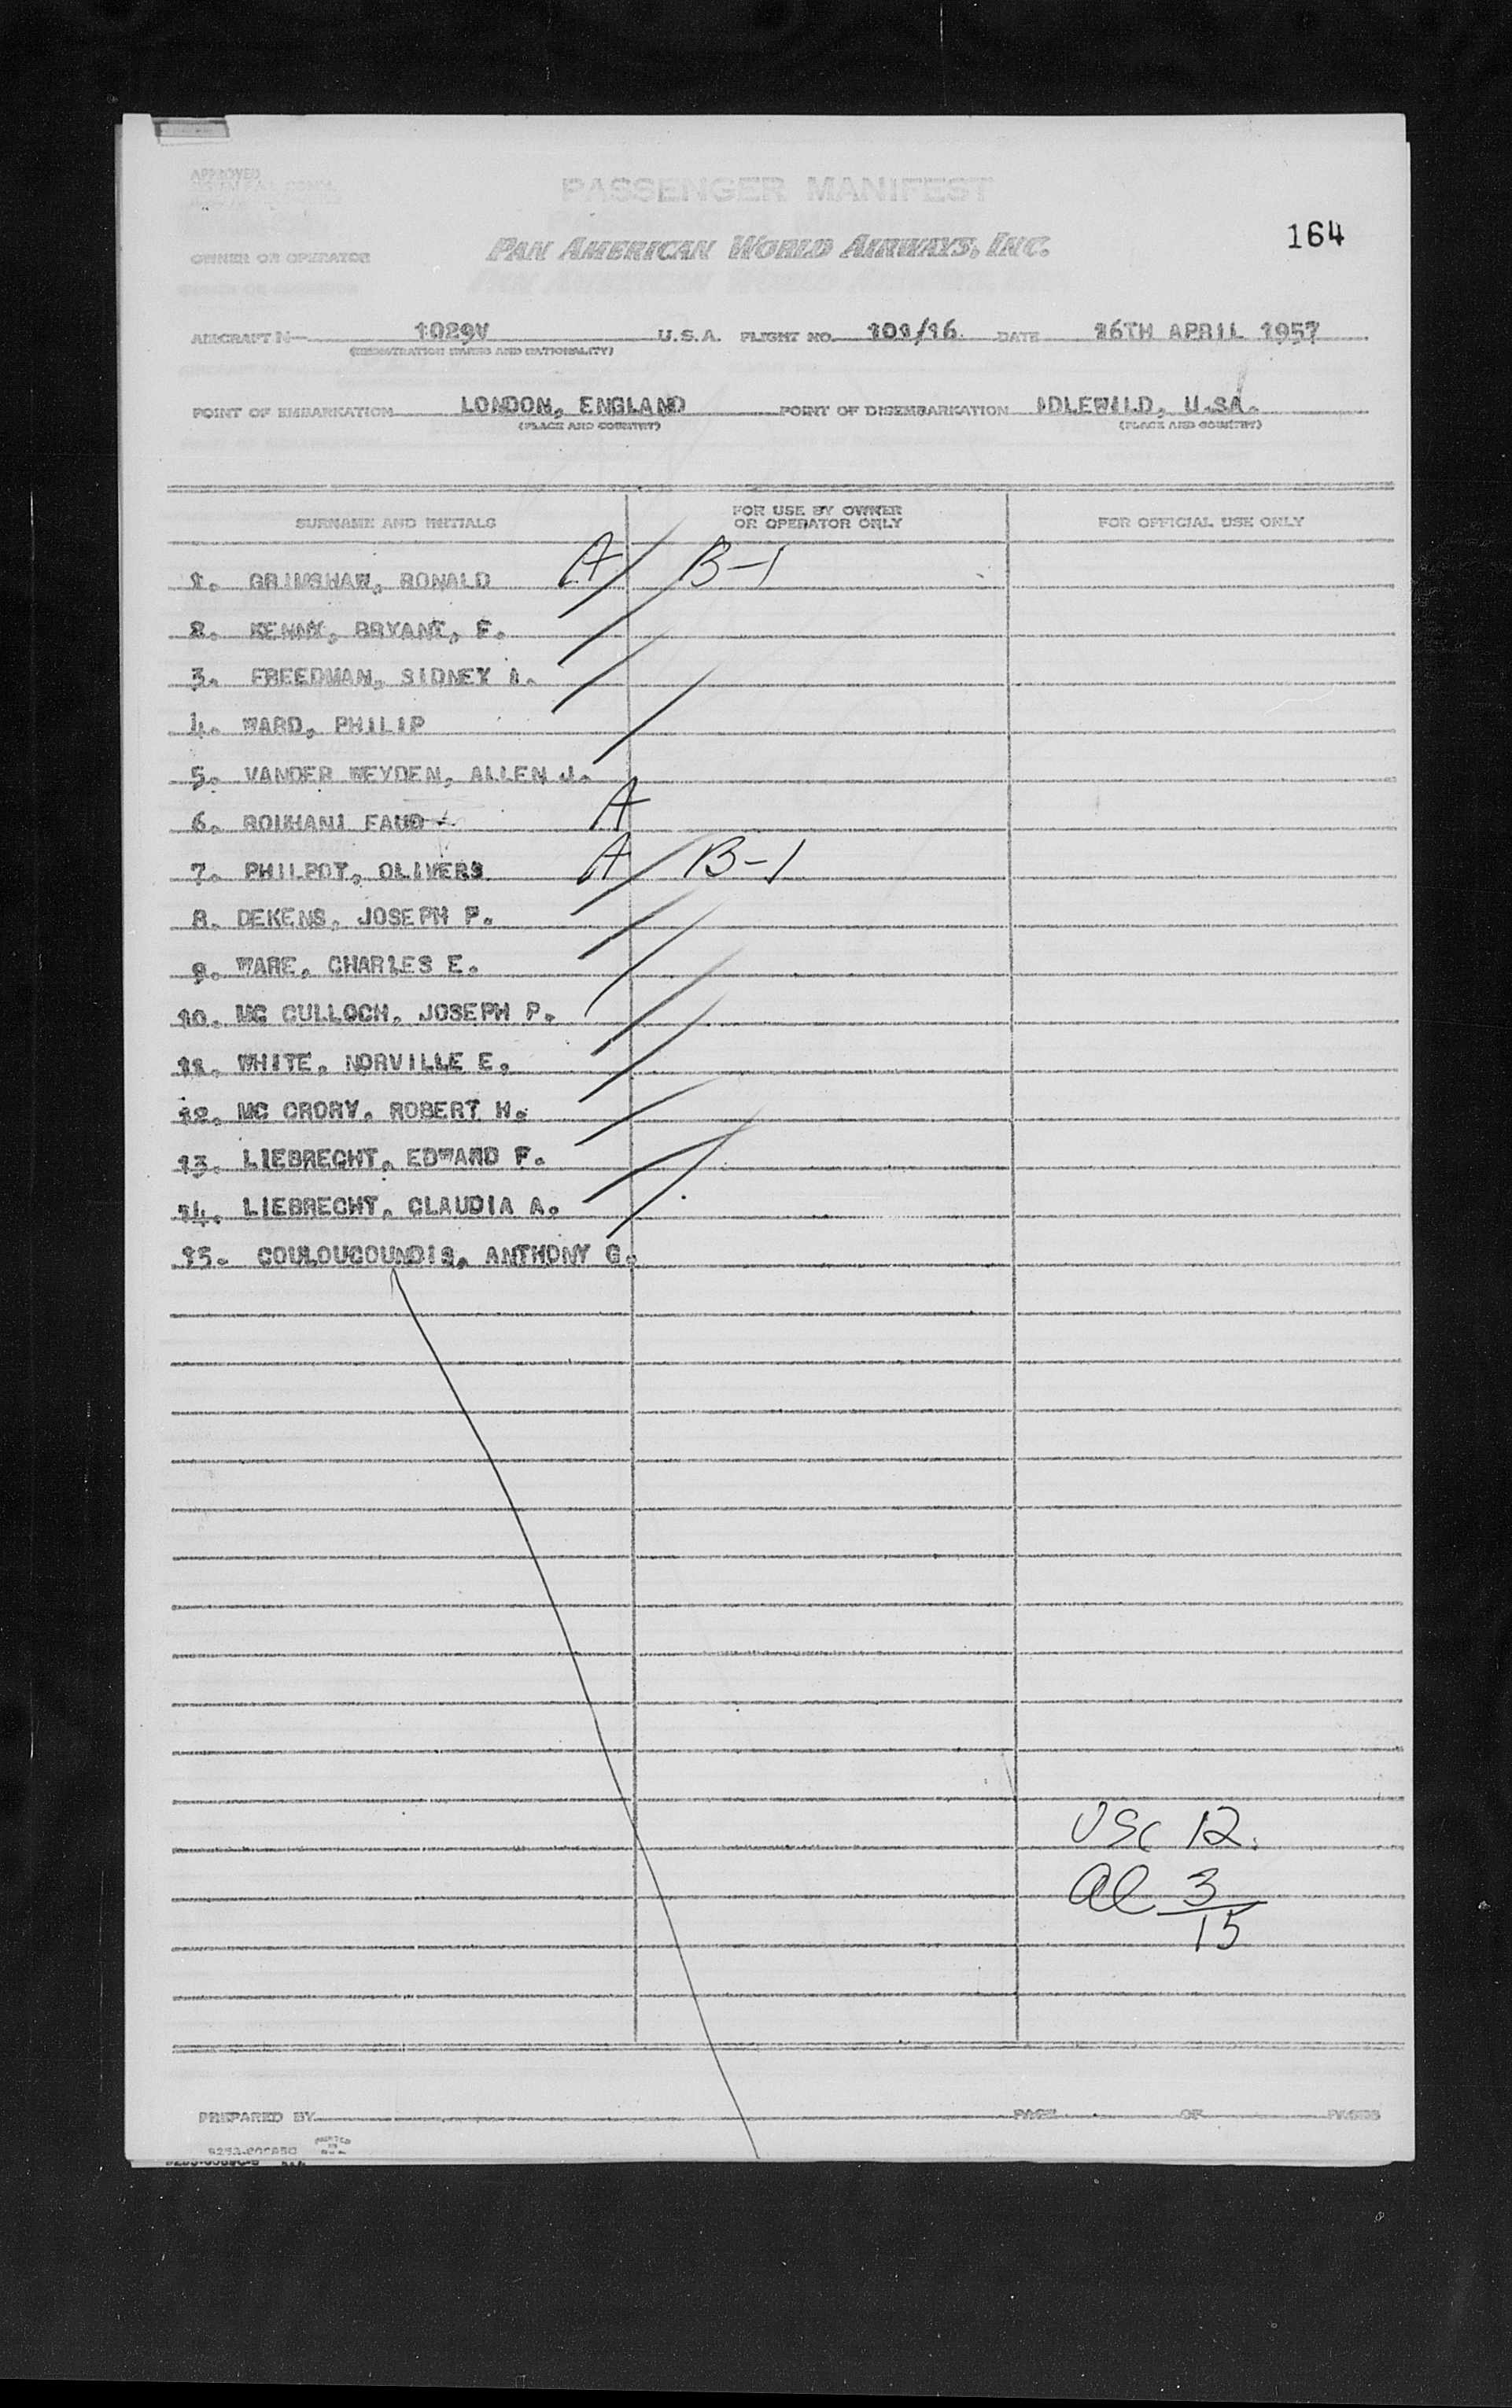 APPROVED
PASSENGER MANIFEST
164
OWNER OR OPERATOR PAN AMERICAN WORLD AIRWAYS, INC.
AIRCRAFT N 1029V U.S.A. FLIGHT NO. 101/16 DATE 16TH APRIL 1957
(REGISTRATION MARKS AND NATIONALITY)
POINT OF EMBARKATION LONDON, ENGLAND POINT OF DISEMBARKATION IDLEWILD, U.SA.
(PLACE AND COUNTRY) (PLACE AND COUNTRY)
SURNAME AND INITIALS FOR USE BY OWNER OR OPERATOR ONLY FOR OFFICIAL USE ONLY
1. GRIMSHAW, RONALD A B-1
2. KENNY, BRYANT, F.
3. FREEDMAN, SIDNEY I.
4. WARD, PHILIP
5. VANDER WEYDEN, ALLEN J.
6. ROUHANI FAUD A
7. PHILPOT, OLIVERS A B-1
8. DEKENS, JOSEPH P.
9. WARE, CHARLES E.
10. MC CULLOCH, JOSEPH P.
11. WHITE, NORVILLE E.
12. MC CRORY, ROBERT H.
13. LIEBRECHT, EDWARD F.
14. LIEBRECHT, CLAUDIA A.
15. COULOUCOUNDIS, ANTHONY G.
USC 12.
al 3
15
PREPARED BY PAGE OF PAGES
PRINTED IN U.S.A.